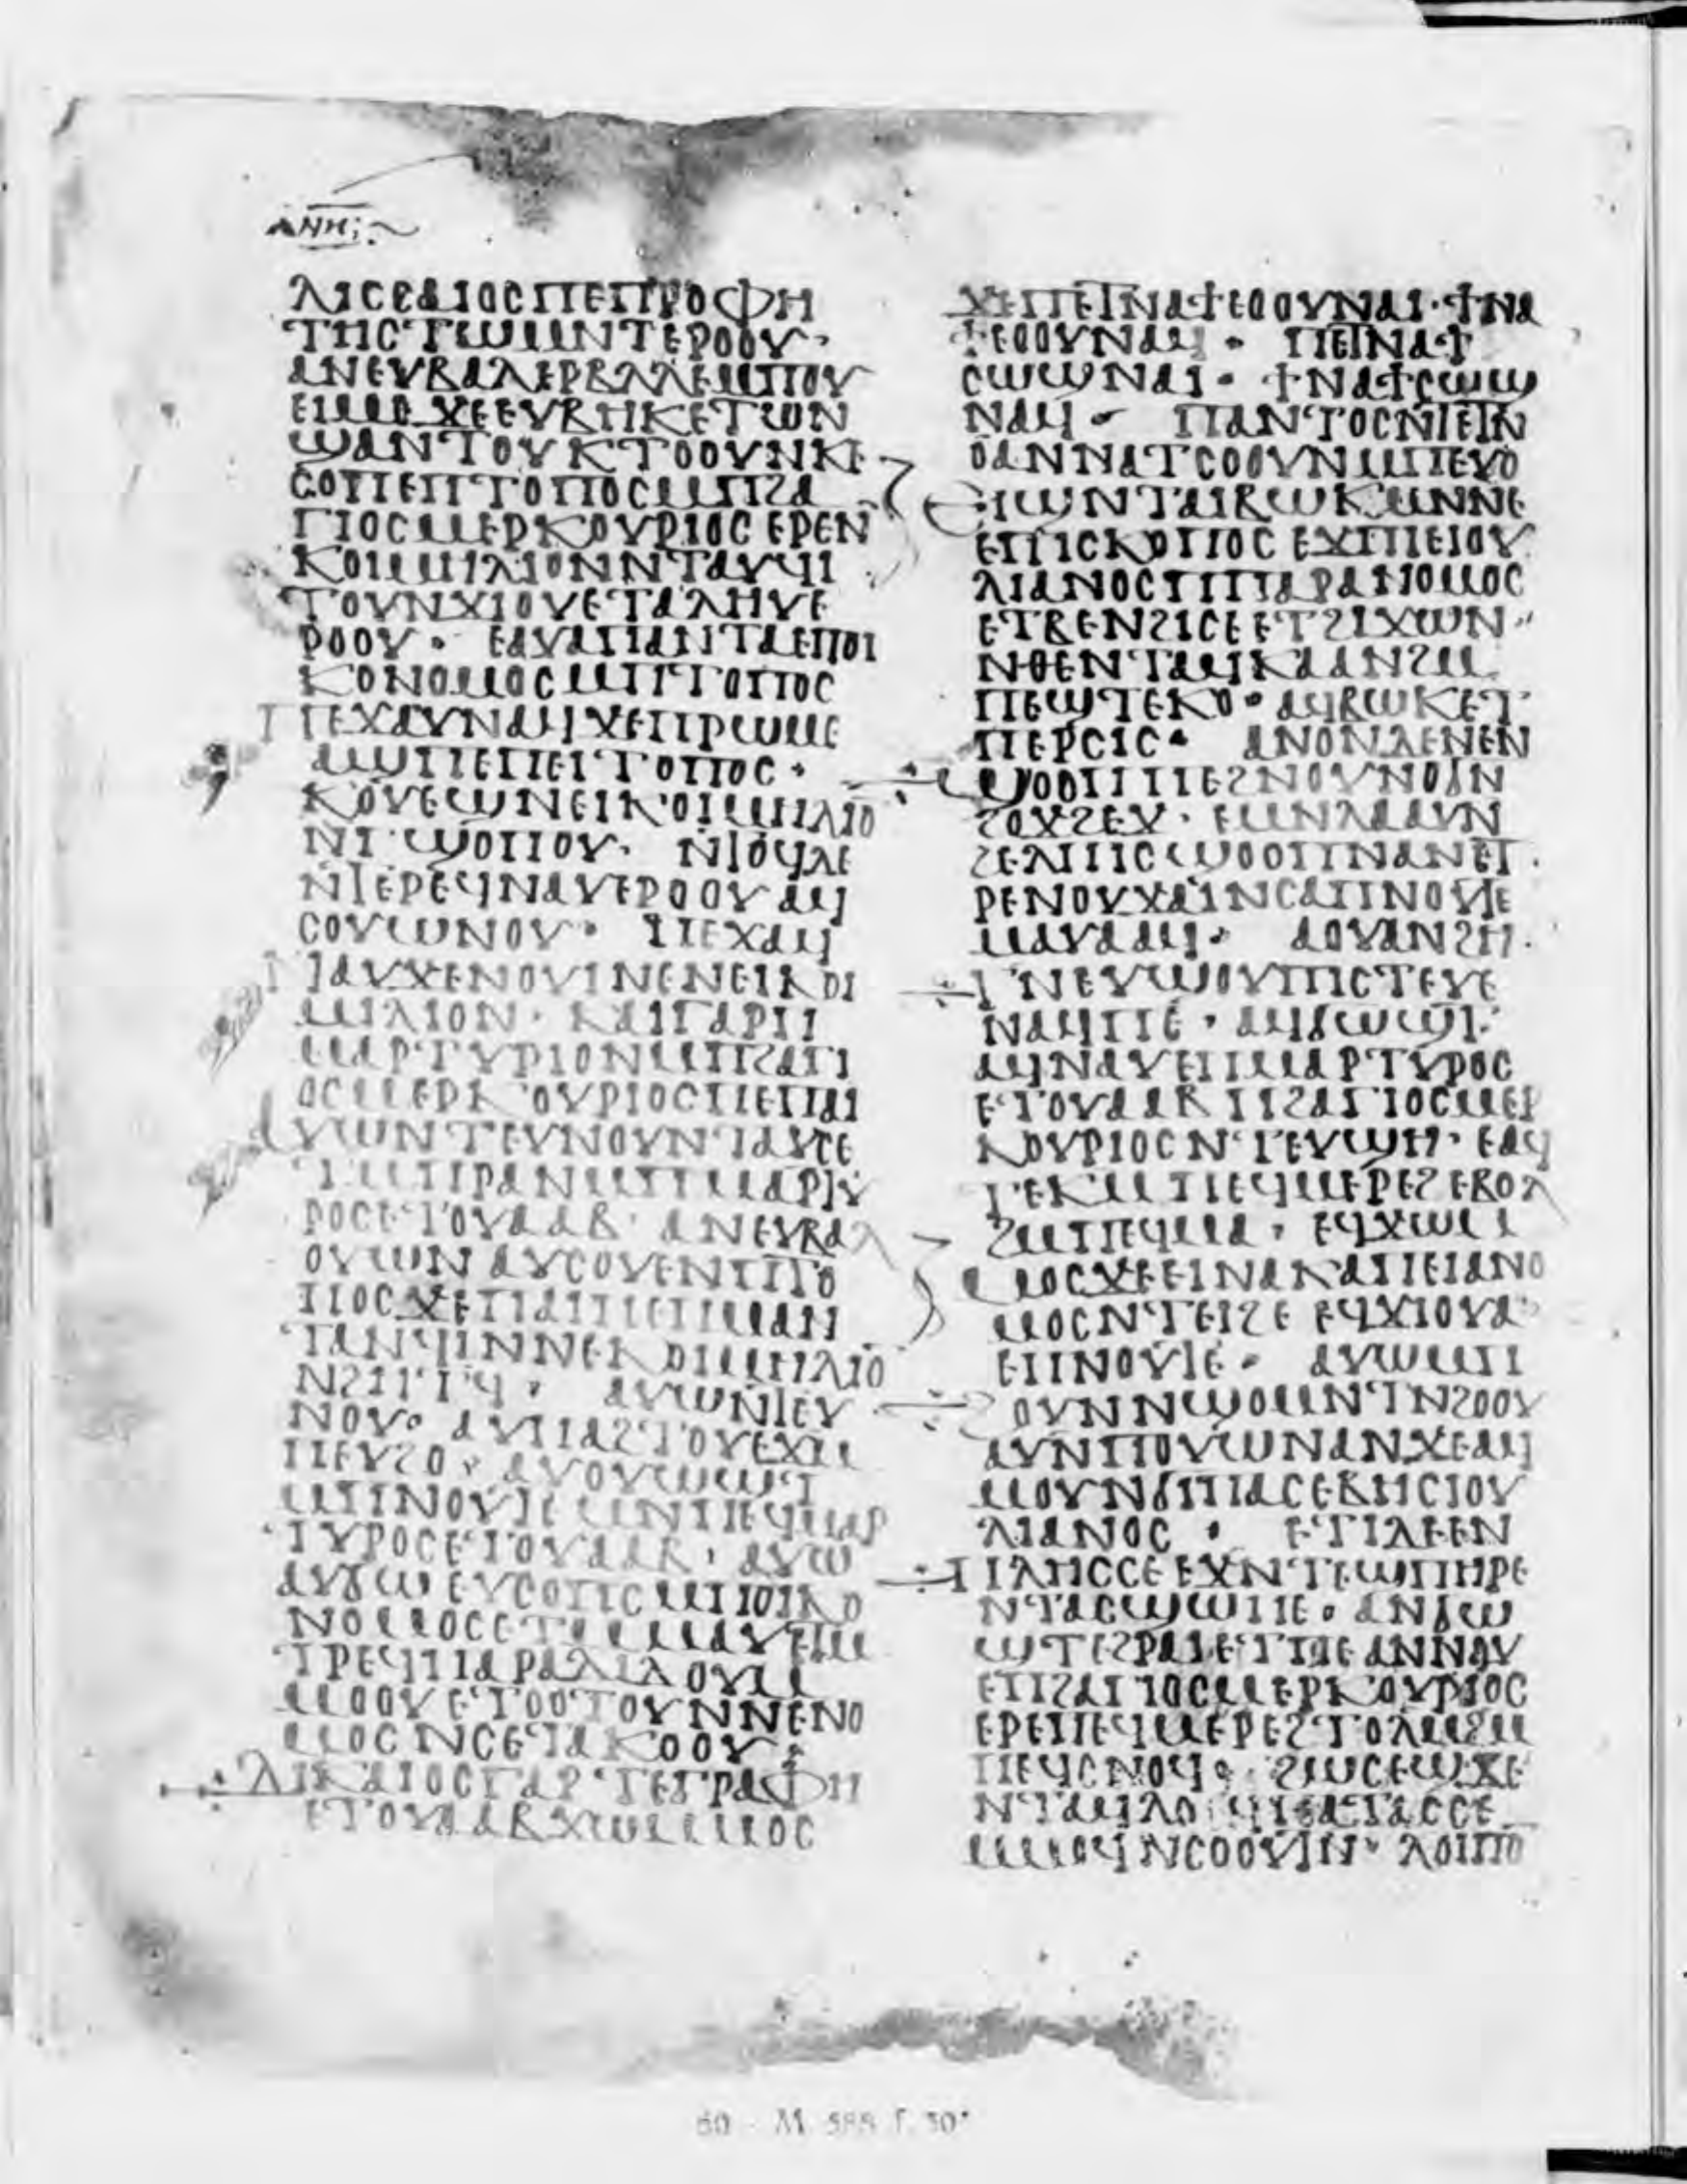 ⲗⲓⲥⲉⲁⲓⲟⲥⲡⲉⲡⲣⲟⲫⲏ
ⲧⲏⲥⲧⲱⲙⲛⲧⲉⲣⲟⲟⲩ·
ⲁⲛⲉⲩⲃⲁⲗⲉⲣⲃⲗⲗⲉⲙⲡⲟⲩ
ⲉⲓⲙⲉϫⲉⲉⲩⲃⲏⲕⲉⲧⲱⲛ
ϣⲁⲛⲧⲟⲩⲕⲧⲟⲟⲩⲛⲕⲉ
ⲥⲟⲡⲉⲡⲧⲟⲡⲟⲥⲙⲡϩⲁ
ⲅⲓⲟⲥⲙⲉⲣⲕⲟⲩⲣⲓⲟⲥⲉⲣⲉⲛ
ⲕⲟⲓⲙⲏⲗⲓⲟⲛⲛⲧⲁⲩϥⲓ
ⲧⲟⲩⲛϫⲓⲟⲩⲉⲧⲁⲗⲏⲩⲉ
ⲣⲟⲟⲩ· ⲉⲁⲩⲁⲡⲁⲛⲧⲁⲉⲡⲟⲓ
ⲕⲟⲛⲟⲙⲟⲥⲙⲡⲧⲟⲡⲟⲥ
ⲡⲉϫⲁⲩⲛⲁϥϫⲉⲡⲣⲱⲙⲉ
ⲙⲡⲉⲓⲧⲟⲡⲟⲥ·
ⲕⲟⲩⲉϣⲛⲉⲓⲕⲟⲓⲙⲏⲗⲓⲟ
ⲛⲧϣⲟⲡⲟⲩ· ⲛⲧⲟϥⲇⲉ
ⲛⲧⲉⲣⲉϥⲛⲁⲩⲉⲣⲟⲟⲩⲁϥ
ⲥⲟⲩⲱⲛⲟⲩ· ⲡⲉϫⲁϥ
ⲛⲁⲩϫⲉⲛⲟⲩⲓⲛⲉⲛⲉⲓⲕⲟⲓ
ⲙⲓⲗⲓⲟⲛ· ⲕⲁⲓⲅⲁⲣⲡ
ⲙⲁⲣⲧⲩⲣⲓⲟⲛⲙⲡϩⲁⲅⲓ
ⲟⲥⲙⲉⲣⲕⲟⲩⲣⲓⲟⲥⲡⲉⲡⲁⲓ
ⲁⲩⲱⲛⲧⲉⲩⲛⲟⲩⲛⲧⲁⲩⲥⲉ
ⲧⲙⲡⲣⲁⲛⲙⲡⲙⲁⲣⲧⲩ
ⲣⲟⲥⲉⲧⲟⲩⲁⲁⲃ· ⲁⲛⲉⲩⲃⲁⲗ
ⲟⲩⲱⲛⲁⲩⲥⲟⲩⲉⲛⲡⲧⲟ
ⲡⲟⲥϫⲉⲡⲁⲓⲡⲉⲡⲙⲁⲛ
ⲧⲁⲛϥⲓⲛⲛⲉⲕⲟⲓⲙⲏⲗⲓⲟ
ⲛϩⲏⲧϥ· ⲁⲩⲱⲛⲧⲉⲩ
ⲛⲟⲩ· ⲁⲩⲡⲁϩⲧⲟⲩⲉϫⲙ
ⲡⲉⲩϩⲟ· ⲁⲩⲟⲩⲱϣⲧ
ⲙⲡⲛⲟⲩⲧⲉⲙⲛⲡⲉϥⲙⲁⲣ
ⲧⲩⲣⲟⲥⲉⲧⲟⲩⲁⲁⲃ· ⲁⲩⲱ
ⲁⲩϭⲱⲉⲩⲥⲟⲡⲥⲙⲡⲟⲓⲕⲟ
ⲛⲟⲙⲟⲥⲉⲧⲙⲙⲁⲩⲉⲧⲙ
ⲧⲣⲉϥⲡⲁⲣⲁⲇⲓⲇⲟⲩⲙ
ⲙⲟⲟⲩⲉⲧⲟⲟⲧⲟⲩⲛⲛⲉⲛⲟ
ⲙⲟⲥⲛⲥⲉⲧⲁⲕⲟⲟⲩ·
ⲇⲓⲕⲁⲓⲟⲥⲅⲁⲣⲧⲉⲅⲣⲁⲫⲏ
ⲉⲧⲟⲩⲁⲁⲃϫⲱⲙⲙⲟⲥ
ϫⲉⲡⲉⲧⲛⲁϯⲉⲟⲟⲩⲛⲁⲓ· ϯⲛⲁ
ϯⲉⲟⲟⲩⲛⲁϥ· ⲡⲉⲧⲛⲁϯ
ⲥⲱϣⲛⲁⲓ· ϯⲛⲁϯⲥⲱϣ
ⲛⲁϥ· ⲡⲁⲛⲧⲟⲥⲛⲧⲉⲧⲛ
ⲟⲁⲛⲛⲁⲧⲥⲟⲟⲩⲛⲙⲡⲉⲩⲟ
ⲉⲓϣⲛⲧⲁⲓⲃⲱⲕⲙⲛⲛⲉ
ⲉⲡⲓⲥⲕⲟⲡⲟⲥⲉϫⲙⲡⲉⲓⲟⲩ
ⲗⲓⲁⲛⲟⲥⲡⲡⲁⲣⲁⲛⲟⲙⲟⲥ
ⲉⲧⲃⲉⲛϩⲓⲥⲉⲉⲧϩⲓϫⲱⲛ·
ⲛⲑⲉⲛⲧⲁϥⲕⲁⲁⲛϩⲙ
ⲡⲉϣⲧⲉⲕⲟ· ⲁϥⲃⲱⲕⲉⲧ
ⲡⲉⲣⲥⲓⲥ· ⲁⲛⲟⲛⲇⲉⲛⲉⲛ
ϣⲟⲟⲡⲡⲉϩⲛⲟⲩⲛⲟϭⲛ
ϩⲟϫϩⲉϫ· ⲉⲙⲛⲗⲁⲁⲩⲛ
ϩⲉⲗⲡⲓⲥϣⲟⲟⲡⲛⲁⲛⲉⲧ
ⲣⲉⲛⲟⲩϫⲁⲓⲛⲥⲁⲡⲛⲟⲩⲧⲉ
ⲙⲁⲩⲁⲁϥ· ⲁⲟⲩⲁⲛϩⲏ
ⲧⲛⲉⲩϣⲟⲩⲡⲓⲥⲧⲉⲩⲉ
ⲛⲁϥⲡⲉ· ⲁϥϭⲱϣⲧ·
ⲁϥⲛⲁⲩⲉⲡⲙⲁⲣⲧⲩⲣⲟⲥ
ⲉⲧⲟⲩⲁⲁⲃⲡϩⲁⲅⲓⲟⲥⲙⲉⲣ
ⲕⲟⲩⲣⲓⲟⲥⲛⲧⲉⲩϣⲏ· ⲉⲁϥ
ⲧⲉⲕⲙⲡⲉϥⲙⲉⲣⲉϩⲉⲃⲟⲗ
ϩⲙⲡⲉϥⲙⲁ· ⲉϥϫⲱⲙ
ⲙⲟⲥϫⲉⲉⲓⲛⲁⲕⲁⲡⲉⲓⲁⲛⲟ
ⲙⲟⲥⲛⲧⲉⲓϩⲉⲉϥϫⲓⲟⲩⲁ
ⲉⲡⲛⲟⲩⲧⲉ· ⲁⲩⲱⲙⲡ
ⲟⲩⲛⲛϣⲟⲙⲛⲧⲛϩⲟⲟⲩ
ⲁⲩⲛⲡⲟⲩⲱⲛⲁⲛϫⲉⲁϥ
ⲙⲟⲩⲛϭⲓⲡⲁⲥⲉⲃⲏⲥⲓⲟⲩ
ⲗⲓⲁⲛⲟⲥ· ⲉⲧⲓⲇⲉⲉⲛ
ⲡⲗⲏⲥⲥⲉⲉϫⲛⲧⲉϣⲡⲏⲣⲉ
ⲛⲧⲁⲥϣⲱⲡⲉ· ⲁⲛϭⲱ
ϣⲧⲉϩⲣⲁⲓⲉⲧⲡⲉⲁⲛⲛⲁⲩ
ⲉⲡϩⲁⲅⲓⲟⲥⲙⲉⲣⲕⲟⲩⲣⲓⲟⲥ
ⲉⲣⲉⲡⲉϥⲙⲉⲣⲉϩⲧⲟⲗⲙϩⲙ
ⲡⲉϥⲥⲛⲟϥ· ϩⲱⲥⲉϣϫⲉ
ⲛⲧⲁϥ
ⲙⲙⲟϥⲛⲥⲟⲟⲩⲧⲛ· ⲗⲟⲓⲡⲟ